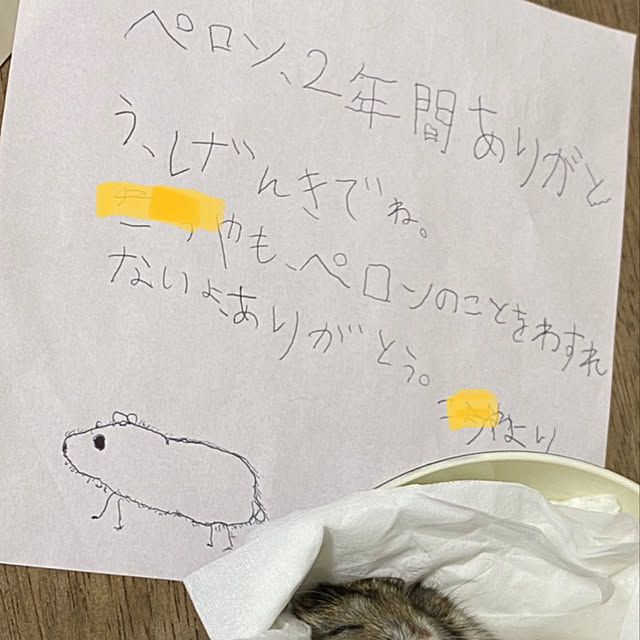 ペロン、2年間ありがと
う、げんきでね。
やも、ペロンのことをわすれ
ないよ、ありがとう。
より